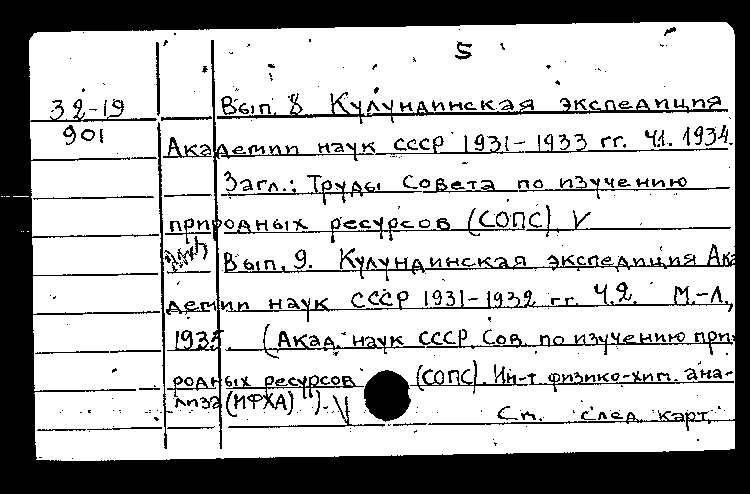 5
32-19 Вып. 8 Кулундинская экспедиция
901
Академии наук СССР 1931-1933 гг. Ч1. 1934.
Загл.: Труды Совета по изучению
природных ресурсов (СОПС) V
Вып. 9. Кулундинская экспедиция Ака
демии наук СССР 1931-1932 гг. Ч.2. М.-Л.,
1935. (Акад. наук СССР. Сов. по изучению при
родных ресурсов (СОПС). Ин-т физико-хим. ана-
лиза (ИФХА)"). V
См. след. карт.